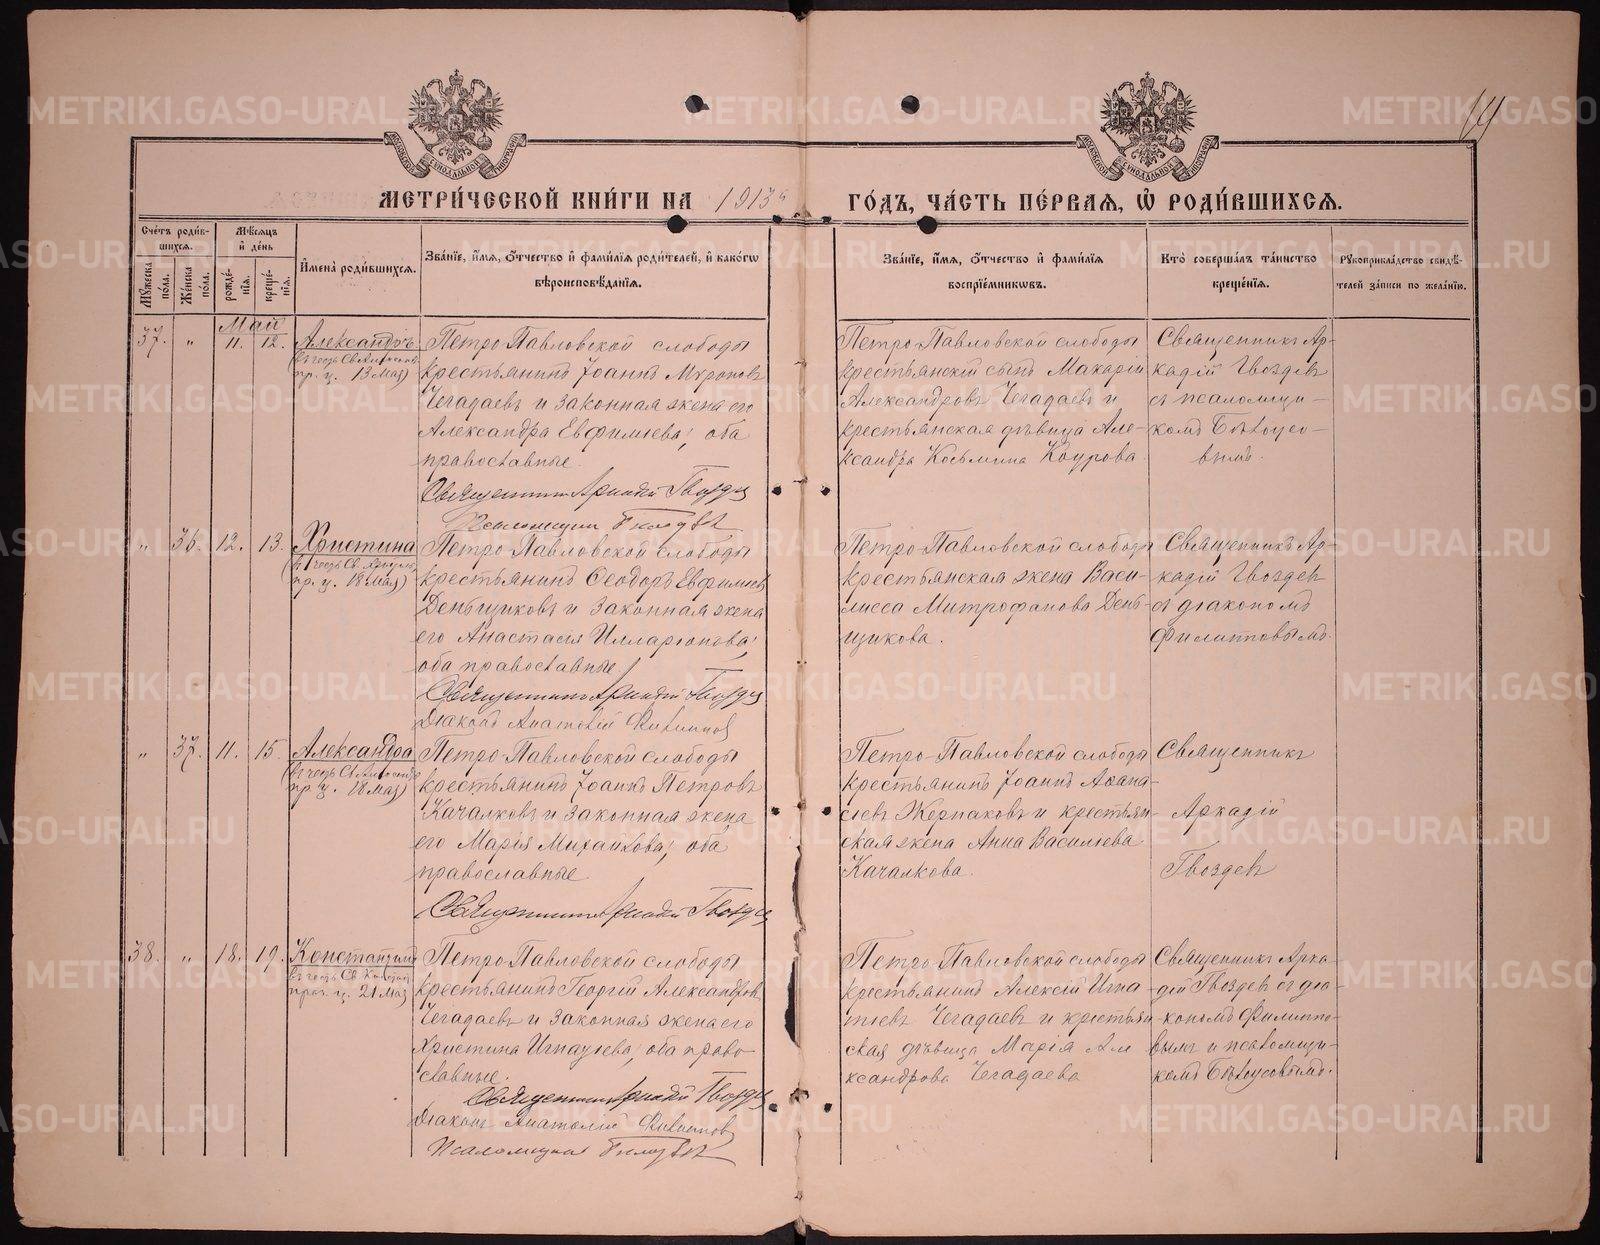 МЕТРИ́ЧЕСКОЙ КНИ́ГИ НА 1913й
ГО́ДЪ, ЧА́СТЬ ПЕ́РВАѦ, Ѽ РОДИ́ВШИХСѦ.
МОСКОВСКОЙ СѴНОДАЛЬНОЙ ТИПОГРАФІИ
МОСКОВСКОЙ СѴНОДАЛЬНОЙ ТИПОГРАФІИ
Сче́тъ роди́вшихсѧ.
Мꙋ́жеска по́ла.
Же́нска по́ла.
Мѣ́сѧцъ и҆ де́нь
рожде́нїѧ.
креще́нїѧ.
И҆мена̀ роди́вшихсѧ.
Зва́нїе, и҆́мѧ, о҆́тчество и҆ фами́лїѧ роди́телей, и҆ како́гѡ
вѣроисповѣ́данїѧ.
Зва́нїе, и҆́мѧ, о҆́тчество и҆ фами́лїѧ
воспрїе́мникѡвъ.
Кто̀ соверша́лъ та́инство
креще́нїѧ.
Рꙋкоприкла́дство свидѣ́-
телей за́писи по жела́нїю.
Май
37. „ 11. 12. Александръ
пр. ц. 13 мая)
Петро-Павловской слободы
крестьянинъ Іоаннъ Мироновъ
Чегадаевъ и законная жена его
Александра Евфимьева, оба
православные.
Священникъ Аркадій Гвоздевъ
Псаломщикъ
Петро-Павловской слободы
крестьянскій сынъ Макарій
Александровъ Чегадаевъ и
крестьянская дѣвица Але-
ксандра Косьмина Коурова.
Священникъ Ар-
кадій Гвоздевъ
съ псаломщи-
комъ Бѣлоусо-
вымъ.
„ 36. 12. 13. Христина
пр. ц. 18 мая)
Петро-Павловской слободы
крестьянинъ Ѳеодоръ Евфимьевъ
Деньщиковъ и законная жена
его Анастасія Илларіонова,
оба православные.
Священникъ Аркадій Гвоздевъ
Діаконъ Анатолій Филипповъ
Петро-Павловской слободы
крестьянская жена Васи-
лисса Митрофанова День-
щикова.
Священникъ Ар-
кадій Гвоздевъ
съ діакономъ
Филипповымъ.
„ 37. 11. 15. Александра
пр. ц. 18 мая)
Петро-Павловской слободы
крестьянинъ Іоаннъ Петровъ
Качалковъ и законная жена
его Марія Михайлова, оба
православные.
Священникъ Аркадій Гвоздевъ
Петро-Павловской слободы
крестьянинъ Іоаннъ Аѳана-
сьевъ Жернаковъ и крестьян-
ская жена Анна Васильева
Качалкова.
Священникъ
Аркадій
Гвоздевъ
38. „ 18. 19. Константинъ
ц. 21 мая
Петро-Павловской слободы
крестьянинъ Георгій Александровъ
Чегадаевъ и законная жена его
Христина Игнатьева, оба право-
славные.
Священникъ Аркадій Гвоздевъ
Діаконъ Анатолій Филипповъ
Псаломщикъ
Петро-Павловской слободы
крестьянинъ Алексій Игна-
тьевъ Чегадаевъ и крестьян-
ская дѣвица Марія Але-
ксандрова Чегадаева
Священникъ Арка-
дій Гвоздевъ съ діа-
кономъ Филиппо-
вымъ и псаломщи-
комъ Бѣлоусовымъ.
METRIKI.GASO-URAL.RU